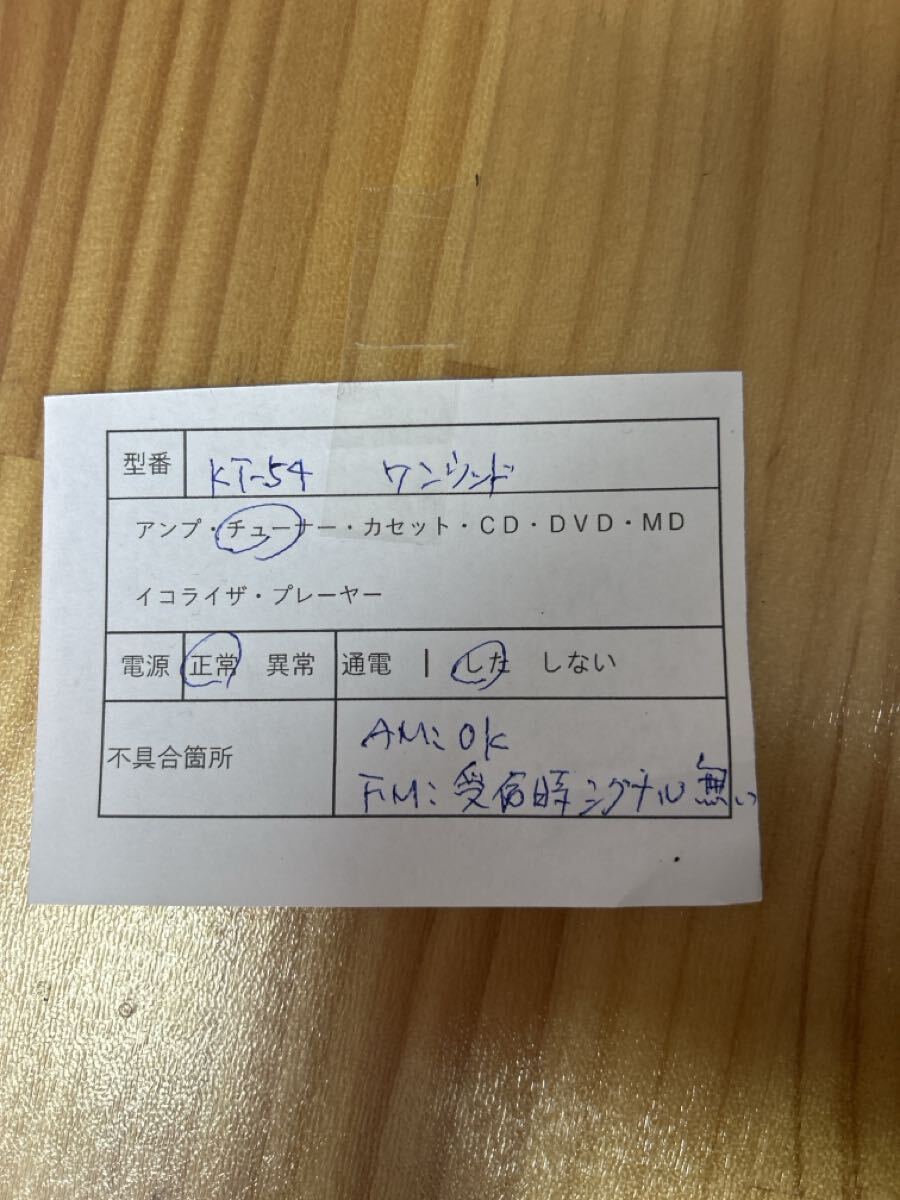 型番 KT-54 ケンウッド
アンプ・チューナー・カセット・CD・DVD・MD
イコライザ・プレーヤー
電源 正常 異常 通電 | した しない
AM: OK
不具合箇所
FM: 受信時シグナル無い